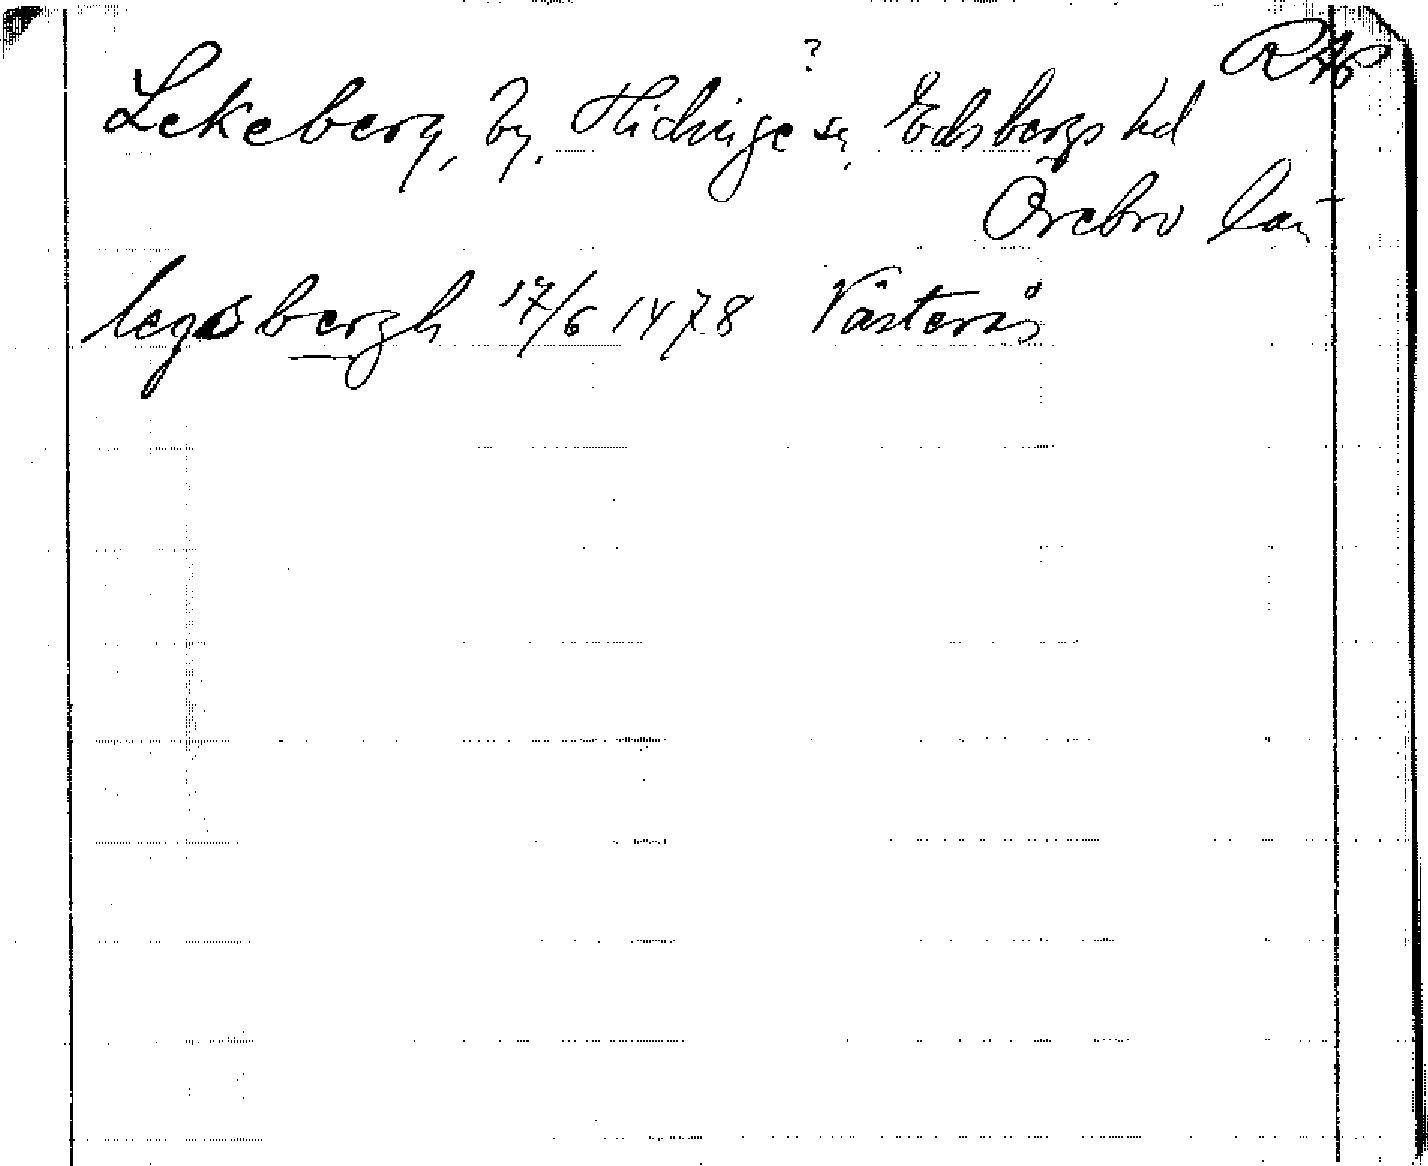 RAP
?
Lekeberg, by, Hidinge sn, Edsbergs hd
Örebro län
legesbergh 17/6 1478 Västerås